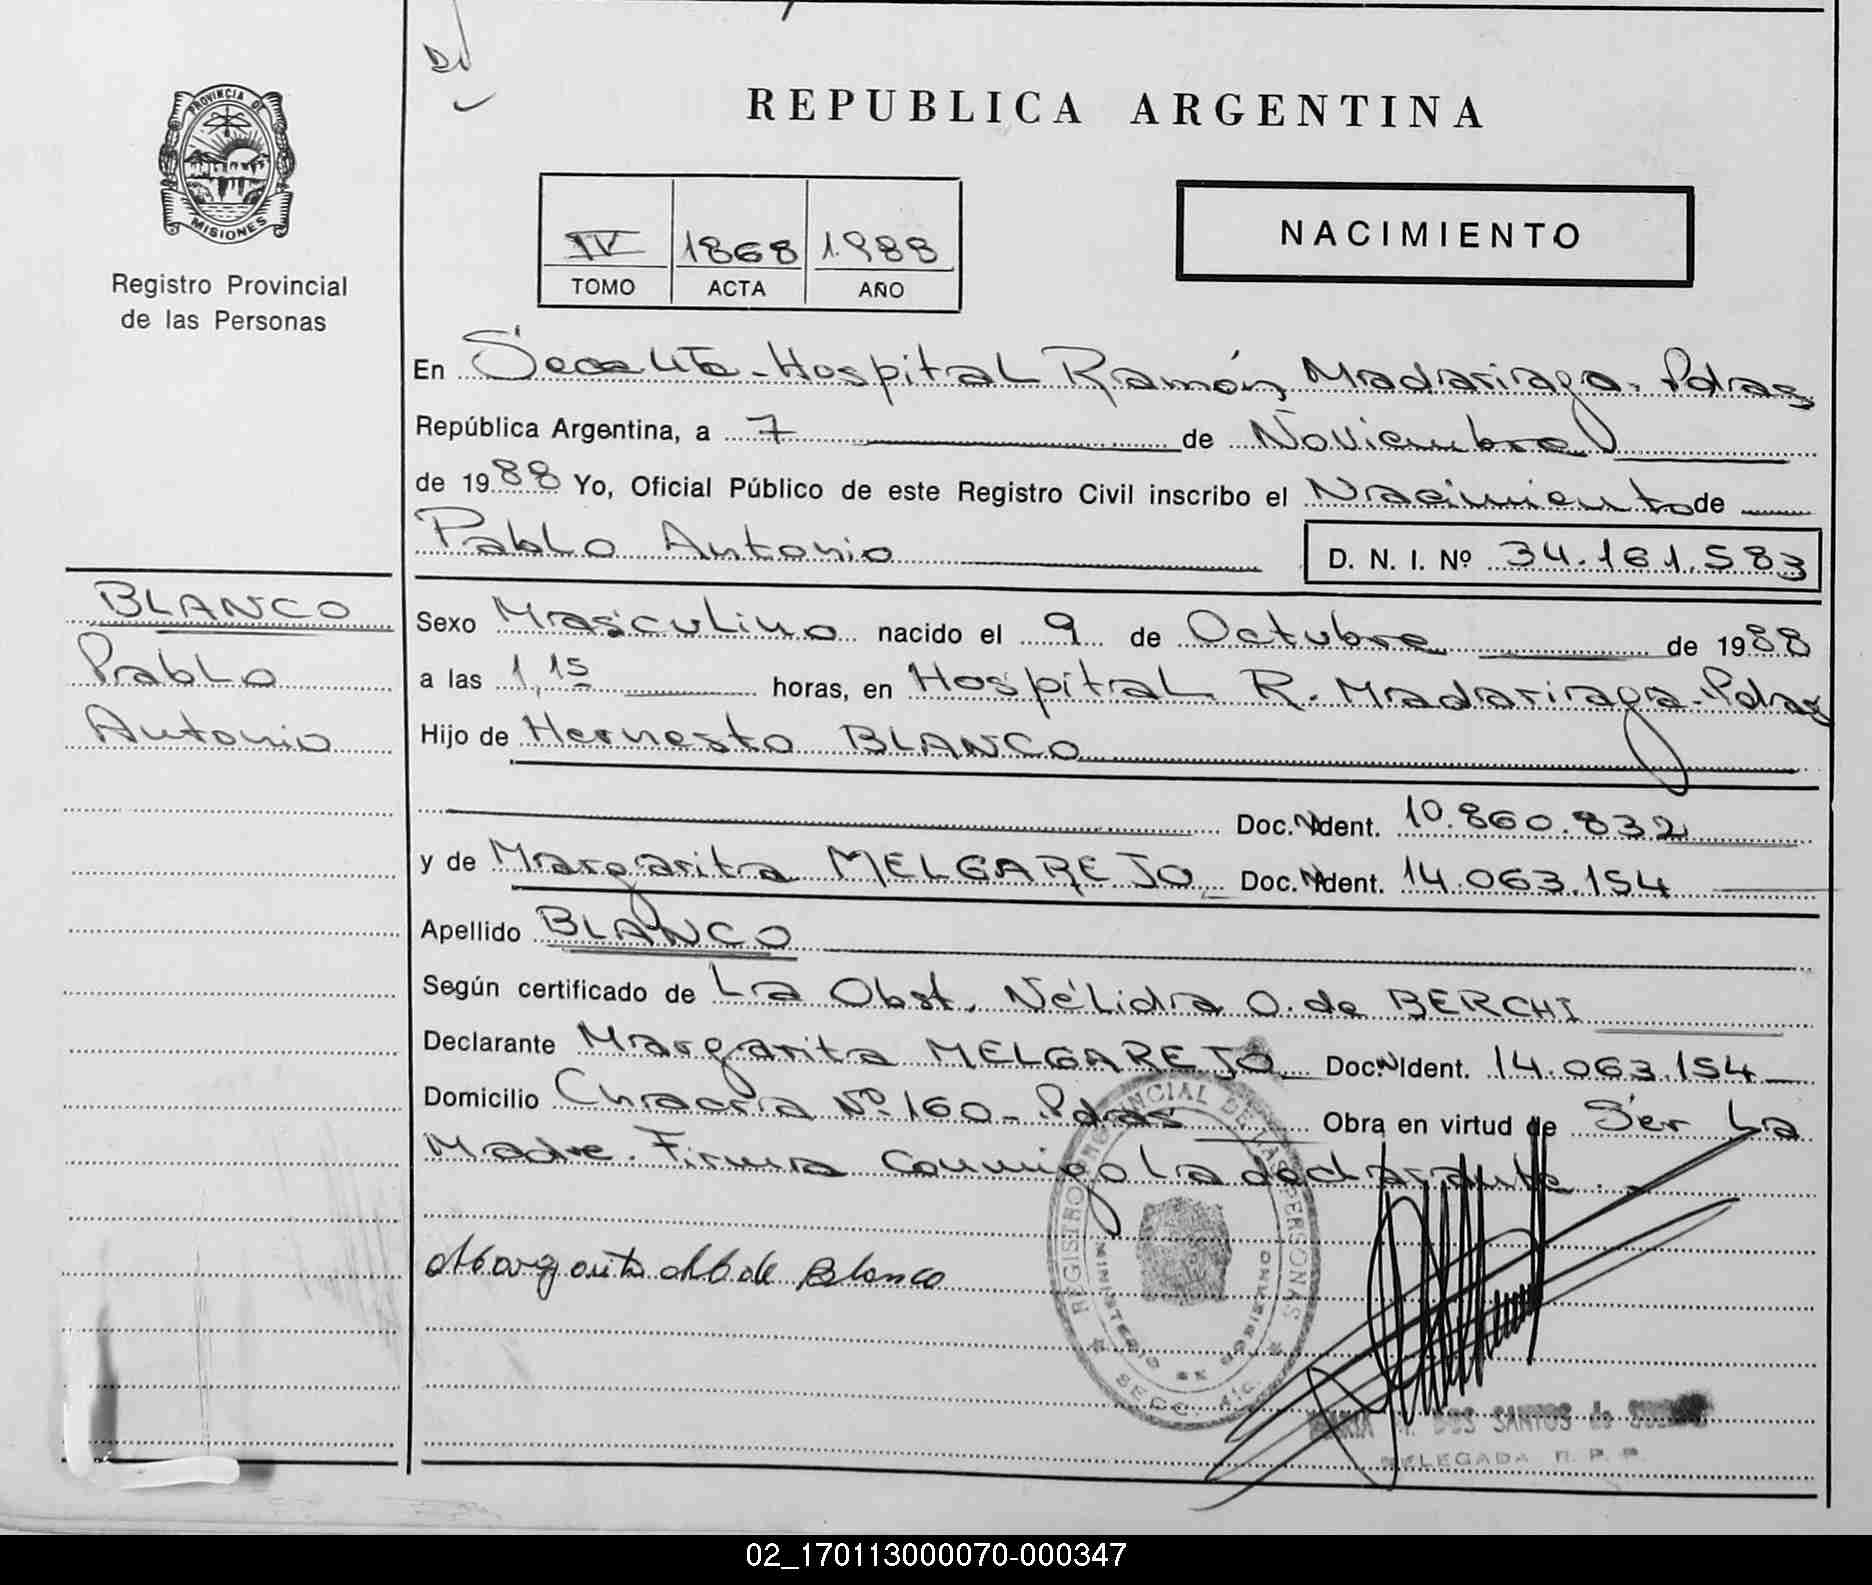 PROVINCIA DE
MISIONES
Registro Provincial
de las Personas
REPUBLICA ARGENTINA
IV 1868 1.988
TOMO ACTA AÑO
NACIMIENTO
En Secc. 4ta - Hospital Ramón Madariaga - Pdas
República Argentina, a 7 de Noviembre
de 1988 Yo, Oficial Público de este Registro Civil inscribo el Nacimiento de
Pablo Antonio
D. N. I. Nº 34.161.583
BLANCO
Pablo
Antonio
Sexo Masculino nacido el 9 de Octubre de 1988
a las 1,15 horas, en Hospital R. Madariaga - Pdas
Hijo de Hernesto BLANCO
Doc. N Ident. 10.860.832
y de Margarita MELGAREJO Doc. N Ident. 14.063.154
Apellido BLANCO
Según certificado de La Obst. Nélida O. de BERCHI
Declarante Margarita MELGAREJO Doc N Ident. 14.063.154
Domicilio Chacra Nº 160 - Pdas Obra en virtud de Ser La
Madre. Firma conmigo la declarante.
Margarita M de Blanco
REGISTRO PROVINCIAL DE LAS PERSONAS
MINISTERIO DE GOBIERNO
SECC. 4ta.
DOS SANTOS de
DELEGADA R. P. P.
02_170113000070-000347